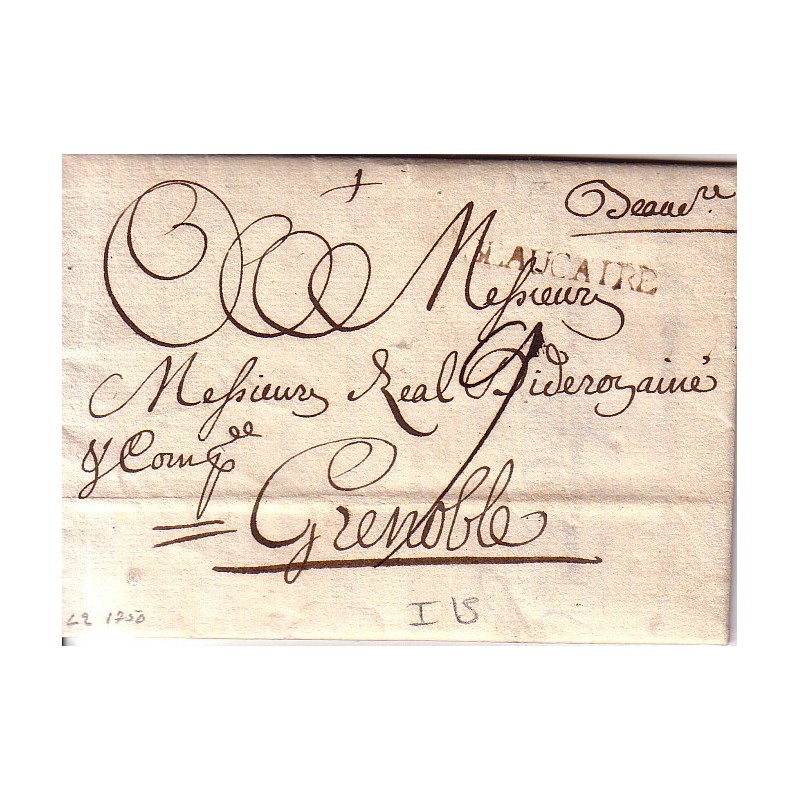 Beauc.re
BEAUCAIRE
Messieurs
Messieurs Real Bideroz ainé
& Comp.ee
= Grenoble
L2 1750